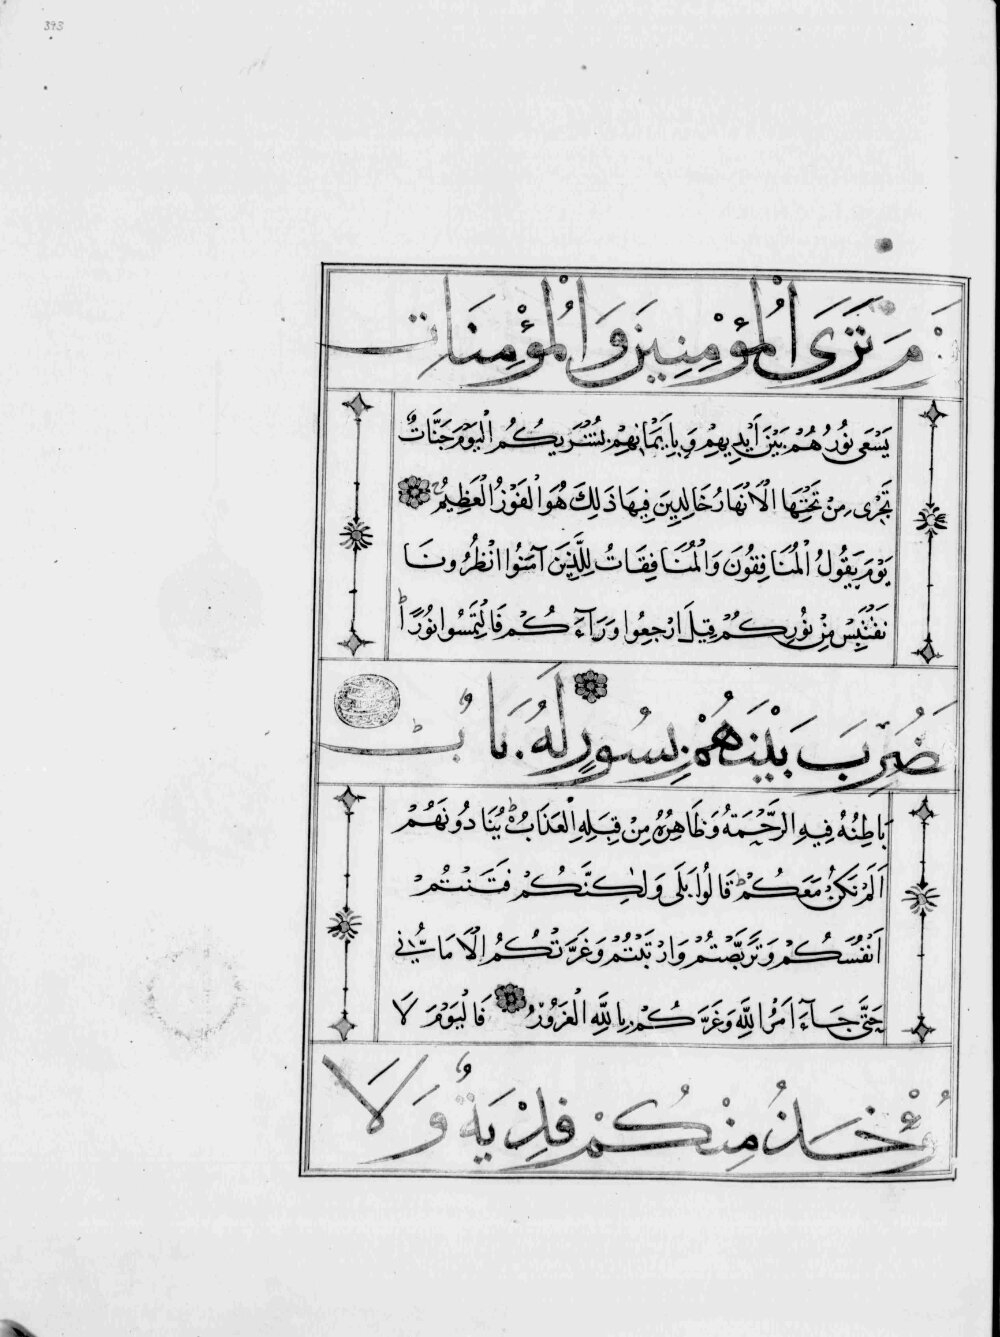 393
يَوْمَ تَرَى الْمُؤْمِنِينَ وَالْمُؤْمِنَاتِ
يَسْعَى نُورُهُمْ بَيْنَ أَيْدِيهِمْ وَبِأَيْمَانِهِمْ بُشْرَيكُمُ الْيَوْمَ جَنَّاتٌ
تَجْرِى مِنْ تَحْتِهَا الْاَنْهَارُ خَالِدِينَ فِيهَا ذَلِكَ هُوَ الْفَوْزُ الْعَظِيمُ
يَوْمَ يَقُولُ الْمُنَافِقُونَ وَالْمُنَافِقَاتُ لِلَّذِينَ آمَنُوا انْظُرُونَا
نَقْتَبِسْ مِنْ نُورِكُمْ قِيلَ ارْجِعُوا وَرَآءَكُمْ فَالْتَمِسُوا نُورًا
فَضُرِبَ بَيْنَهُمْ بِسُورٍ لَهُ بَابٌ
بَاطِنُهُ فِيهِ الرَّحْمَةُ وَظَاهِرُهُ مِنْ قِبَلِهِ الْعَذَابُ يُنَادُونَهُمْ
اَلَمْ نَكُنْ مَعَكُمْ قَالُوا بَلَى وَلٰكِنَّكُمْ فَتَنْتُمْ
اَنْفُسَكُمْ وَتَرَبَّصْتُمْ وَارْتَبْتُمْ وَغَرَّتْكُمُ الْاَمَانِيُّ
حَتَّى جَآءَ اَمْرُ اللَّهِ وَغَرَّكُمْ بِاللَّهِ الْغَرُورُ فَالْيَوْمَ لَا
يُؤْخَذُ مِنْكُمْ فِدْيَةٌ وَلَا